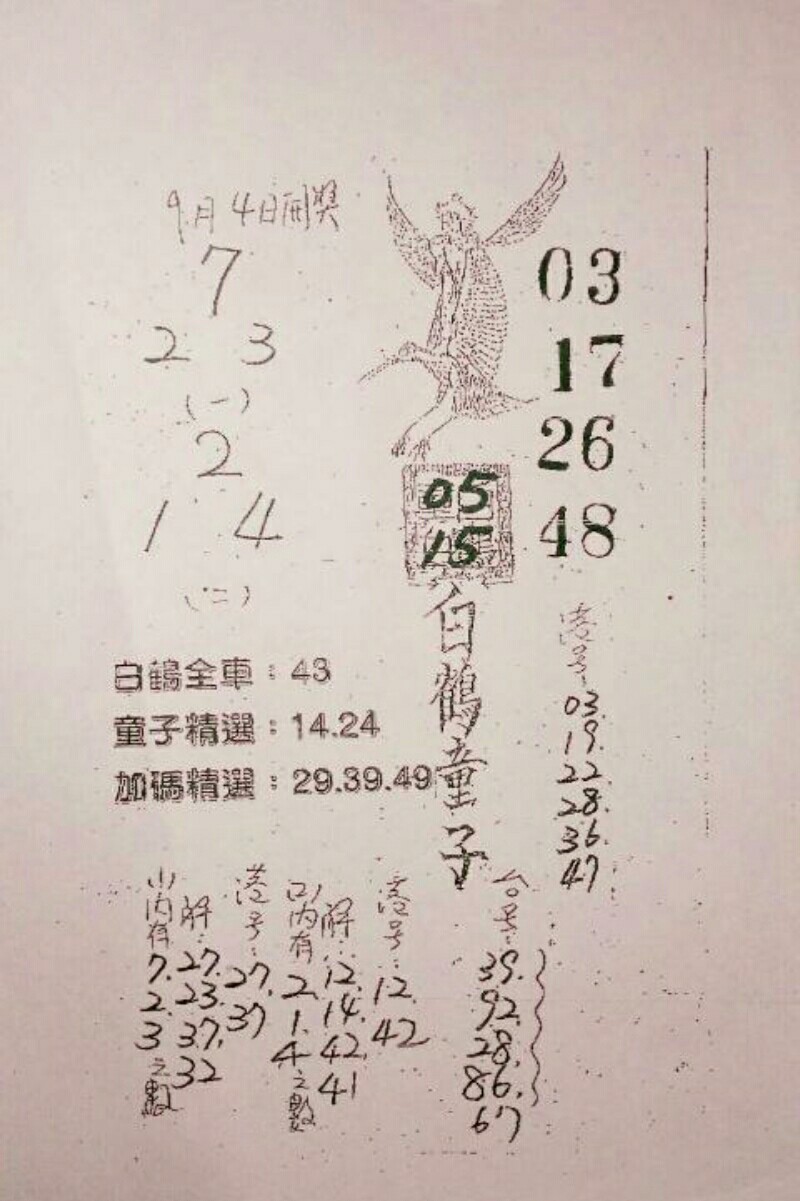 9月4日開獎
7
2 3
(一)
2
1 4
(二)
03
17
26
48
05
15
白鶴童子
白鶴全車：43
童子精選：14.24
加碼精選：29.39.49
港号：
03.
19.
22.
28.
36.
47.
(一)內有
7.
2.
3
之數
解：
27.
23.
37.
32
港号：
27.
37
(二)內有
2.
1.
4
之數
解：
12.
14.
42.
41
港号：
12.
42
台号：
39.
92.
28.
86.
67